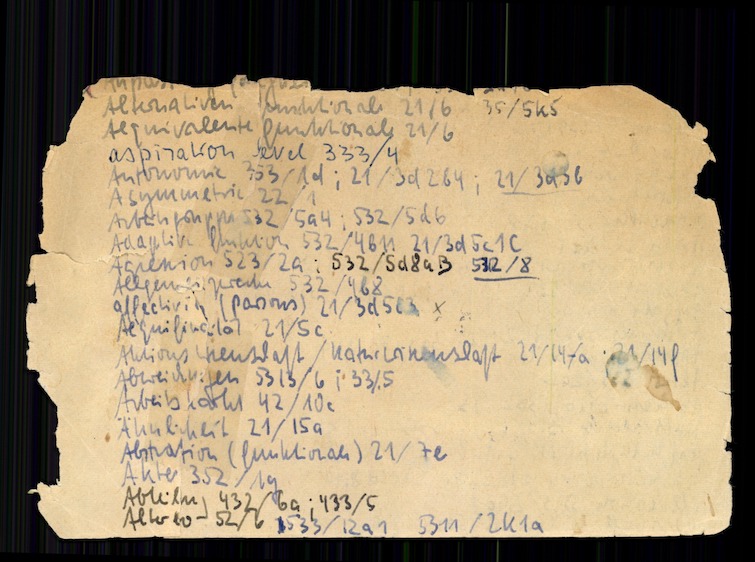 Alternativen funktionale 21/6 35/5k5
Aequivalente funktionale 21/6
aspiration level 333/4
Autonomie 353/1d ; 21/3d264 ; 21/3d36
Asymmetrie 22/1
Arbeitsgruppe 532/5a4 ; 532/5d6
Adaptive funktion 532/4611 21/3d5c1C
532/5d8aB 532/8
532/468
affectivity (Parsons) 21/3d5c3 x
Aequifinalität 21/5c
Aktionswissenschaft / Naturwissenschaft 21/14/a 21/14f
Abweichungen 5313/6 ; 33/5
42/10c
Ähnlichkeit 21/15a
Abstraktion (funktionale) 21/7e
Alter 352/1g
Abteilung 432/6a ; 433/5
52/6 533/12a1 5311/2k1a